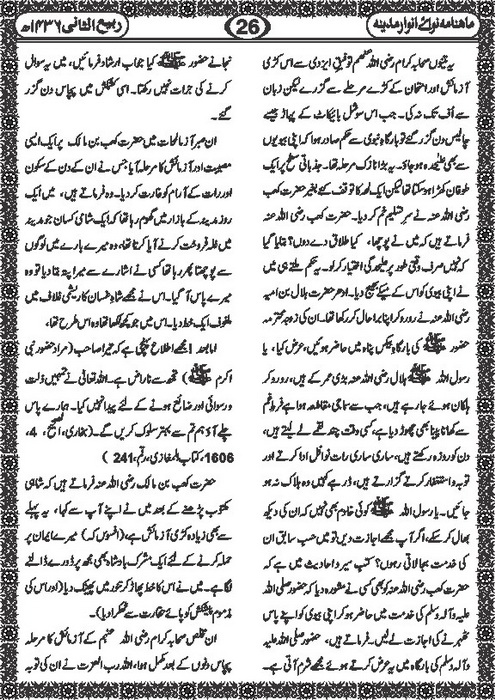 ماہنامہ نوائے انوار مدینہ
26
ربیع الثانی ۱۴۳۶ھ
یہ تینوں صحابہ کرام رضی اللہ عنھم توفیق ایزدی سے اس کڑی
آزمائش اور امتحان کے کڑے مرحلے سے گزرے لیکن زبان
سے اُف تک نہ کی۔ جب اس سوشل بائیکاٹ کے پہاڑ جیسے
چالیس دن گزر گئے تو بارگاہ نبوی سے حکم صادر ہوا کہ اپنی بیویوں
سے بھی علیٰحدہ ہو جاؤ۔ یہ بڑا نازک مرحلہ تھا۔ جذباتی سطح پر ایک
طوفان کھڑا ہو سکتا تھا لیکن ایک لمحہ کا توقف کئے بغیر حضرت کعب
رضی اللہ عنہ نے سرِ تسلیم خم کر دیا۔ حضرت کعب رضی اللہ عنہ
فرماتے ہیں کہ میں نے پوچھا، کیا طلاق دے دوں؟ بتایا گیا
کہ نہیں صرف وقتی طور پر علیحدگی اختیار کر لو۔ یہ حکم ملتے ہی میں
نے اپنی بیوی کو اس کے میکے بھیج دیا۔ ادھر حضرت ہلال بن امیہ
رضی اللہ عنہ نے رو رو کر اپنا برا حال کر رکھا تھا۔ ان کی زوجہ محترمہ
حضور ﷺ کی بارگاہ بیکس پناہ میں حاضر ہوئیں، عرض کیا، یا
رسول اللہ ﷺ ہلال رضی اللہ عنہ بڑی عمر کے ہیں، رو رو کر
ہلکان ہوئے جا رہے ہیں، جب سے سماجی مقاطعہ ہوا ہے فرطِ غم
سے کھانا پینا بھی چھوڑ دیا ہے، کسی وقت چند لقمے لے لیتے ہیں،
دن کو روزہ رکھتے ہیں، ساری ساری رات نوافل ادا کرتے اور
توبہ و استغفار کرتے گزارتے ہیں، ڈر ہے کہیں وہ ہلاک نہ ہو
جائیں۔ یا رسول اللہ ﷺ کوئی خادم بھی نہیں کہ ان کی دیکھ
بھال کر سکے، اگر آپ مجھے اجازت دیں تو میں حسب سابق ان
کی خدمت بجا لاتی رہوں؟ کتب سیر و احادیث میں ہے کہ
حضرت کعب رضی اللہ عنہ کو بھی کسی نے مشورہ دیا کہ حضور صلی اللہ
علیہ وآلہ وسلم کی خدمت میں حاضر ہو کر اپنی بیوی کو اپنے پاس
ٹھہرنے کی اجازت لے لیں۔ فرماتے ہیں، حضور صلی اللہ علیہ
وآلہ وسلم کی بارگاہ میں یہ عرض کرتے ہوئے مجھے شرم آتی ہے۔
نجانے حضور ﷺ کیا جواب ارشاد فرمائیں، میں یہ سوال
کرنے کی جرات نہیں رکھتا۔ اسی کشمکش میں پچاس دن گزر
گئے۔
ان صبر آزما لمحات میں حضرت کعب بن مالک پر ایک ایسی
مصیبت اور آزمائش کا مرحلہ آیا جس نے ان کے دن کے سکون
اور رات کے آرام کو غارت کر دیا۔ وہ فرماتے ہیں، میں ایک
روز مدینہ کے بازار میں گھوم رہا تھا کہ ایک شامی کسان جو مدینہ
میں غلہ فروخت کرنے آیا کرتا تھا، وہ میرے بارے میں لوگوں
سے پوچھتا پھر رہا تھا کسی نے اشارے سے میرا پتہ بتا دیا تو وہ
میرے پاس آ گیا۔ اس نے مجھے شاہِ غسان کا ریشمی غلاف میں
ملفوف ایک خط دیا۔ اس میں جو کچھ لکھا تھا وہ اس طرح تھا،
اما بعد! مجھے اطلاع پہنچی ہے کہ تیرا صاحب (مراد حضور نبی
اکرم ﷺ) تجھ سے ناراض ہے۔ اللہ تعالیٰ نے تمہیں ذلت
و رسوائی اور ضائع ہونے کے لئے پیدا نہیں کیا۔ ہمارے پاس
چلے آؤ ہم تم سے بہتر سلوک کریں گے۔ (بخاری، الصحیح، 4،
1606، کتاب المغازی، رقم، 241)
حضرت کعب بن مالک رضی اللہ عنہ فرماتے ہیں کہ شاہی
مکتوب پڑھنے کے بعد میں نے اپنے آپ سے کہا، یہ پہلے
سے بھی زیادہ کڑی آزمائش ہے، (افسوس کہ) میرے ایمان پر
حملہ کرنے کے لئے ایک مشرک بادشاہ بھی مجھ پر ڈورے ڈالنے
لگا ہے۔ میں نے اس کا خط پھاڑ کر تنور میں پھینک دیا (اور اس کی
مذموم پیشکش کو پائے حقارت سے ٹھکرا دیا)۔
ان مخلص صحابہ کرام رضی اللہ عنھم کے آزمائش کا مرحلہ
پچاس دنوں کے بعد مکمل ہوا، اللہ رب العزت نے ان کی توبہ